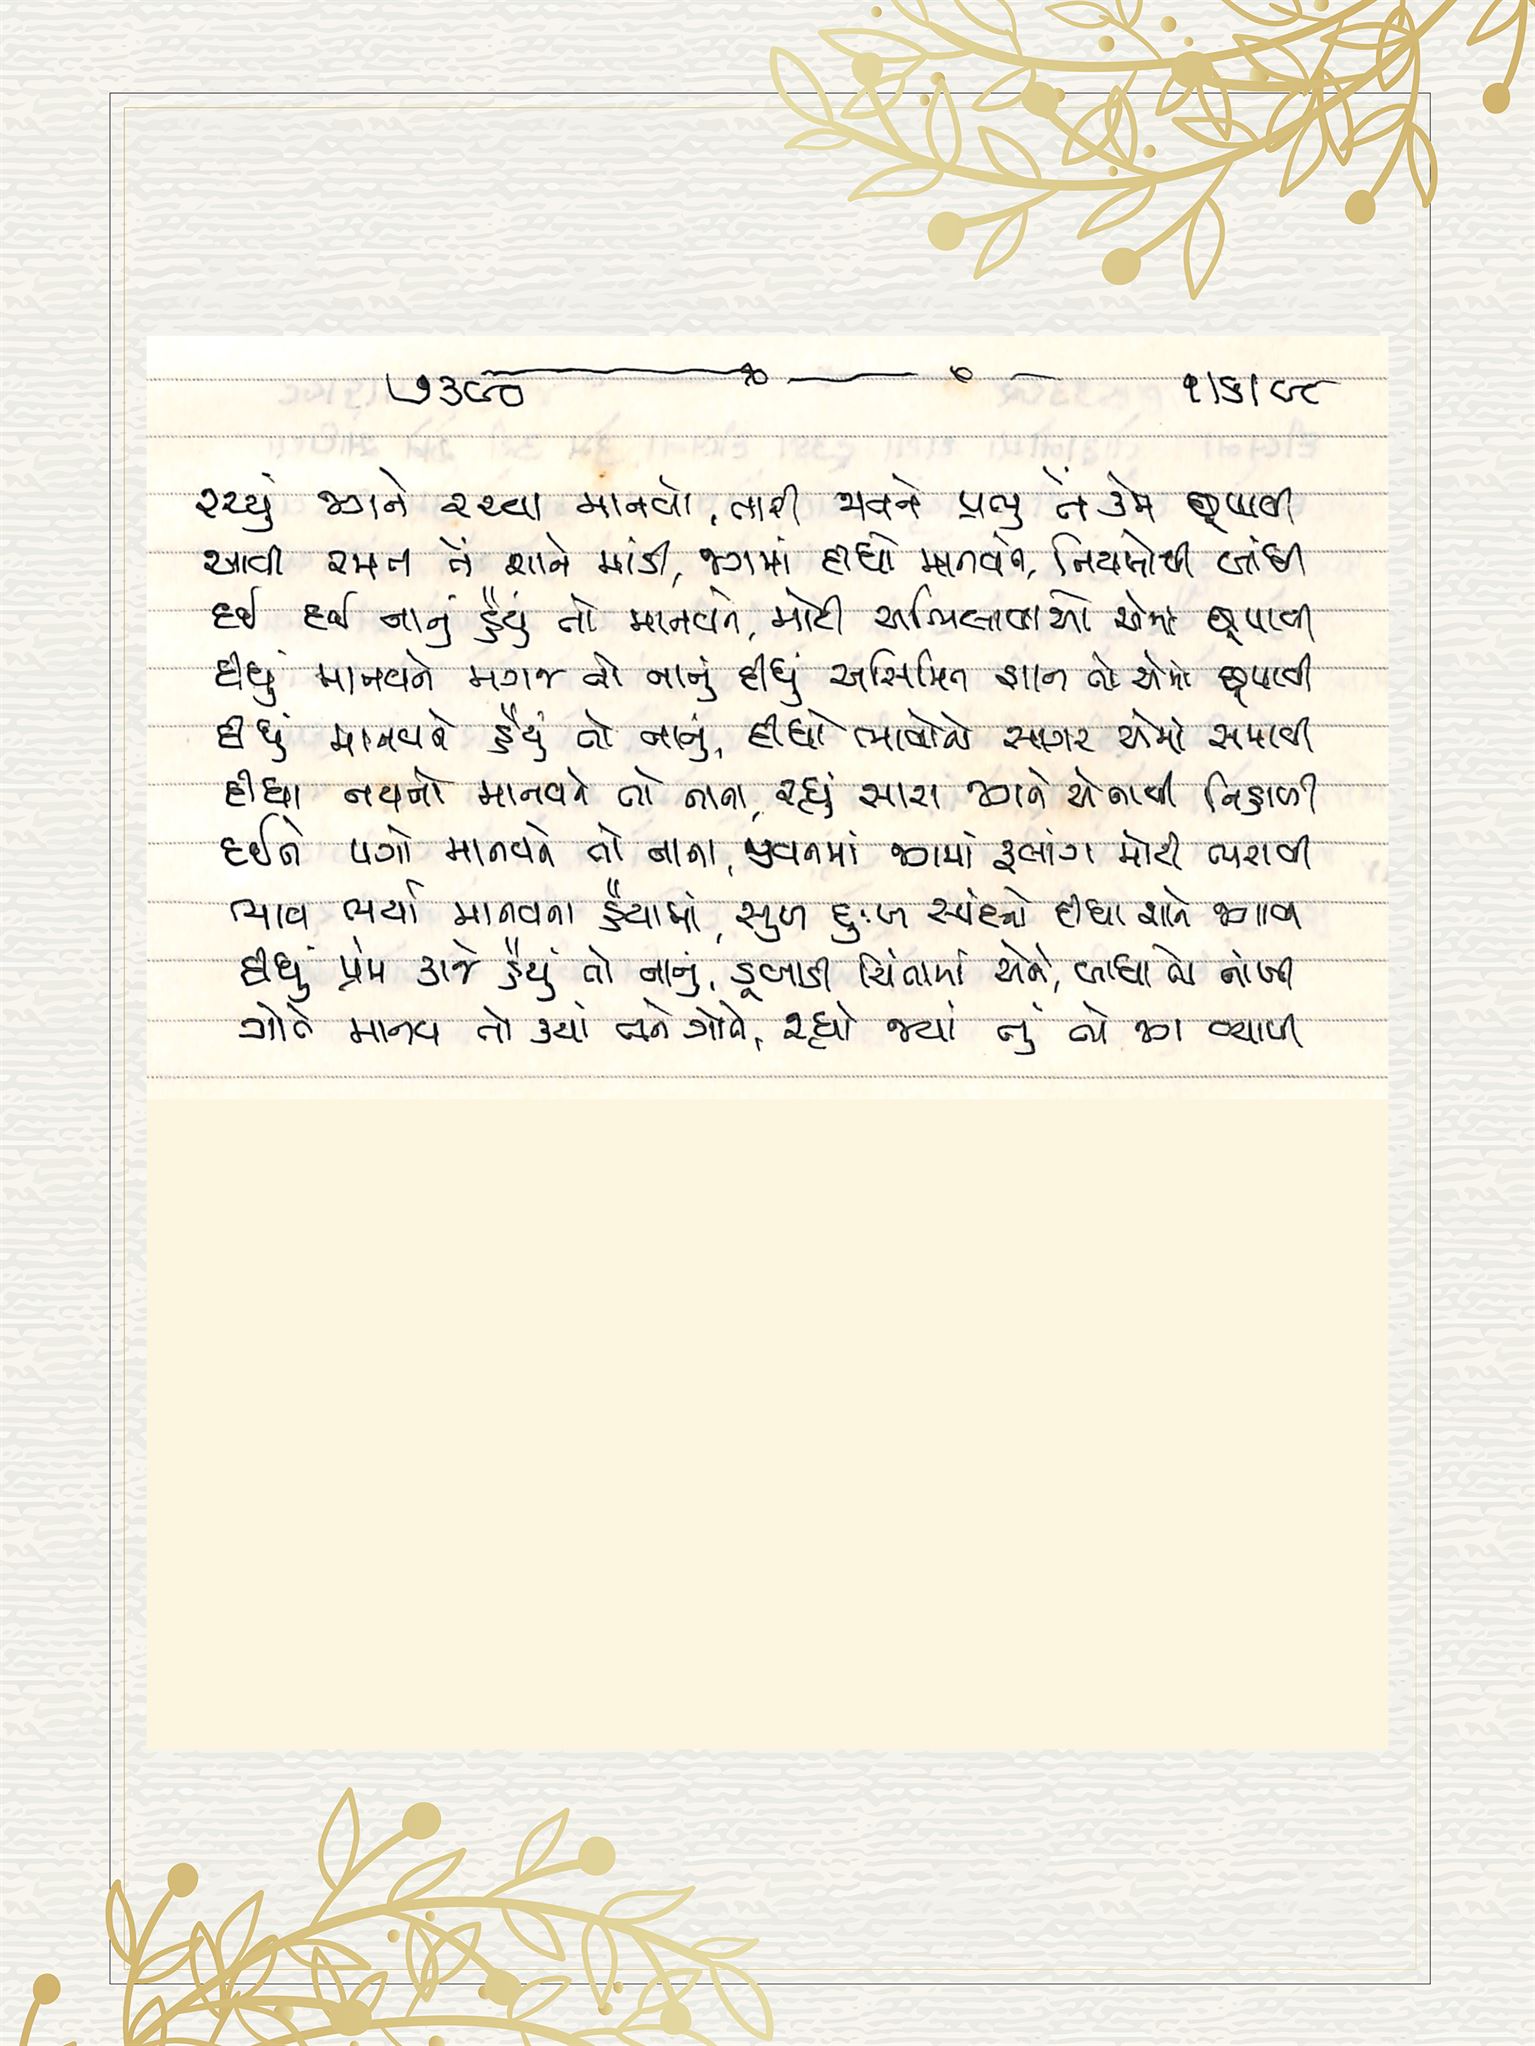 ૭૩૯૦ ૧/૬/૯૮
રચ્યું જગને રચ્યા માનવો, તારી જાતને પ્રભુ તેં કેમ છૂપાવી
આવી રમત તેં શાને માંડી, જગમાં દીધો માનવને, નિયમોથી બાંધી
દઈ દઈ નાનું હૈયું તો માનવને, મોટી અભિલાષાઓ એમાં છૂપાવી
દીધું માનવને મગજ તો નાનું દીધું અસિમિત જ્ઞાન તો એમાં છૂપાવી
દીધું માનવને હૈયું તો નાનું, દીધો ભાવોનો સાગર એમાં સમાવી
દીધા નયનો માનવને તો નાના, રહ્યું સારા જગને એનાથી નિહાળી
દઈને પગો માનવને તો નાના, જીવનમાં જગમાં ફલાંગ મોટી ભરાવી
ભાવ ભર્યા માનવના હૈયામાં, સુખ દુઃખ સ્પંદનો દીધા શાને જગાવી
દીધું પ્રેમ કાજે હૈયું તો નાનું, ડૂબાડી ચિંતામાં એને, બાધા તો નાંખી
ગોતે માનવ તો ક્યાં તને ગોતે, રહ્યો જ્યાં તું તો જગ વ્યાપી